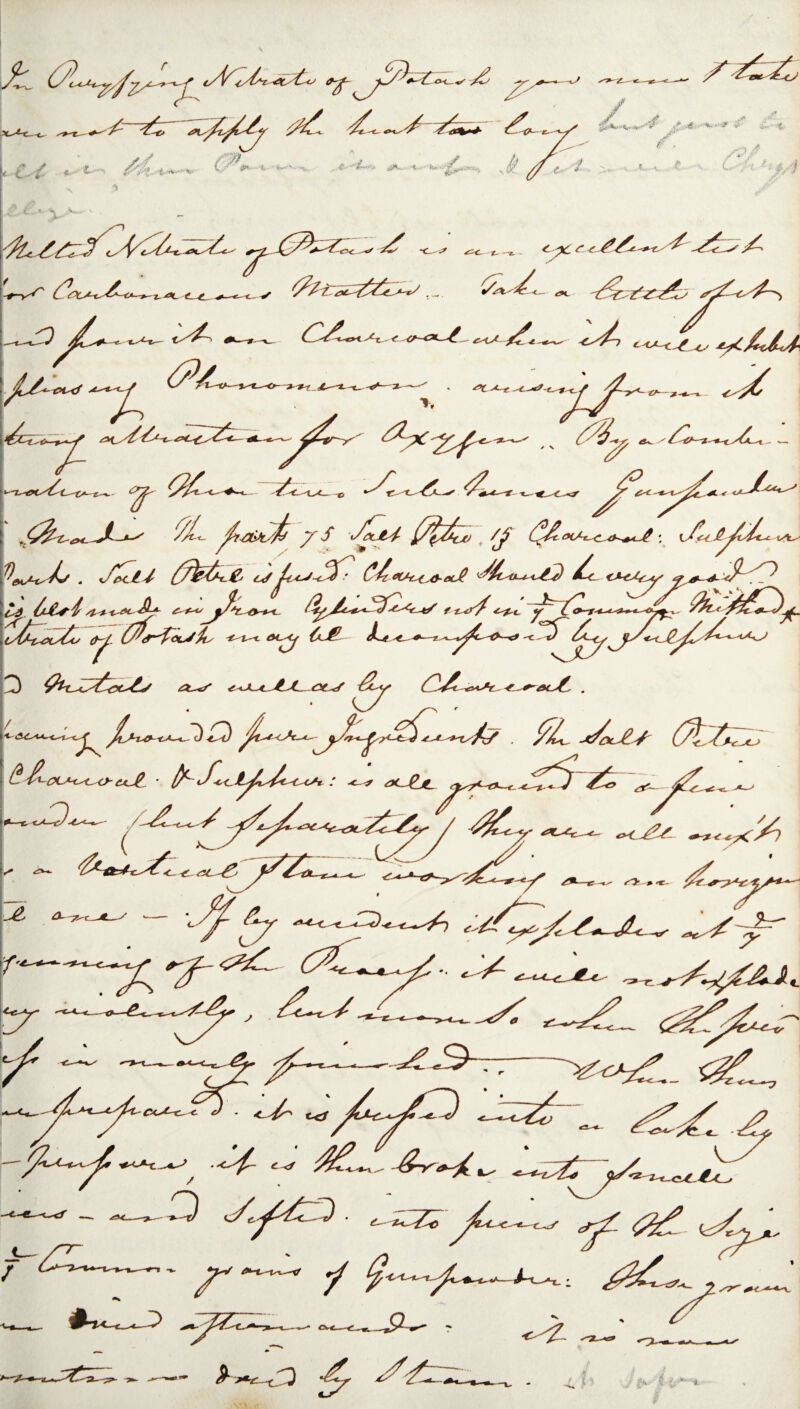 In Puryfying Nitrate of Potash you must take
care not to apply the heat too long but just to
melt it then Pour it out & it will Chryst
ellize.
Melted Nitrate of Potash is an excellent test
for Carbonaceous Matter. Take a little of it
and pour it on Charcoal when it will exhibit
pleasing Phonomenon. arising from its
strong attraction for Oxygen.. By a Combi-
nation of these two Substances Gunpowder
is Made The parts 75 Salt Petre. 15 Charcoal: Sulphur
Parts. Salt Petre is fused: Charcoal should be very good
is best made in Iron Cylinders not in ye Common Method
Nitrate of Potash may be decomposed by Sulphur
Metals as well as by Charcoal.
having provided pure Ingredients. The Salt Petre
Charcoal. & Sulphur: is all ground to a fine
powder (but Separately) they are all mixt
a Vertical Stone working on an horizon
one — If by accident it explodes at ye
beginning of the Process. it will not explode
violently, but more So when the pro
cess is nearly finished.. When thus
prepared. it is pressed into a Cake by
-pressure, it is then broke into small
pieces - and Sifted. into pieces of the Size
ye Common grains of Gunpowder: These grains
are dried afterwards: it is now
dried by Steam. its Safer.